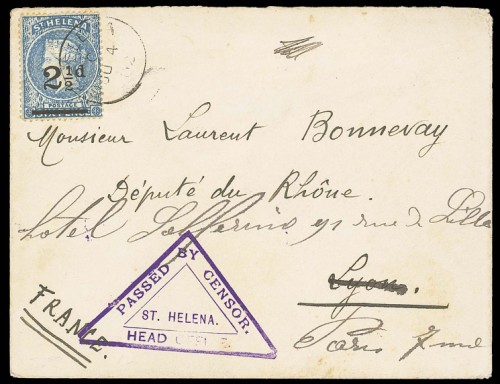 ST HELENA
2½d
POSTAGE
JU 4
02
Monsieur Laurent Bonnevay
Député du Rhône.
hotel Solferino 91 rue de Lille
Lyon.
Paris 7me
FRANCE.
PASSED BY CENSOR.
ST. HELENA.
HEAD OFFICE